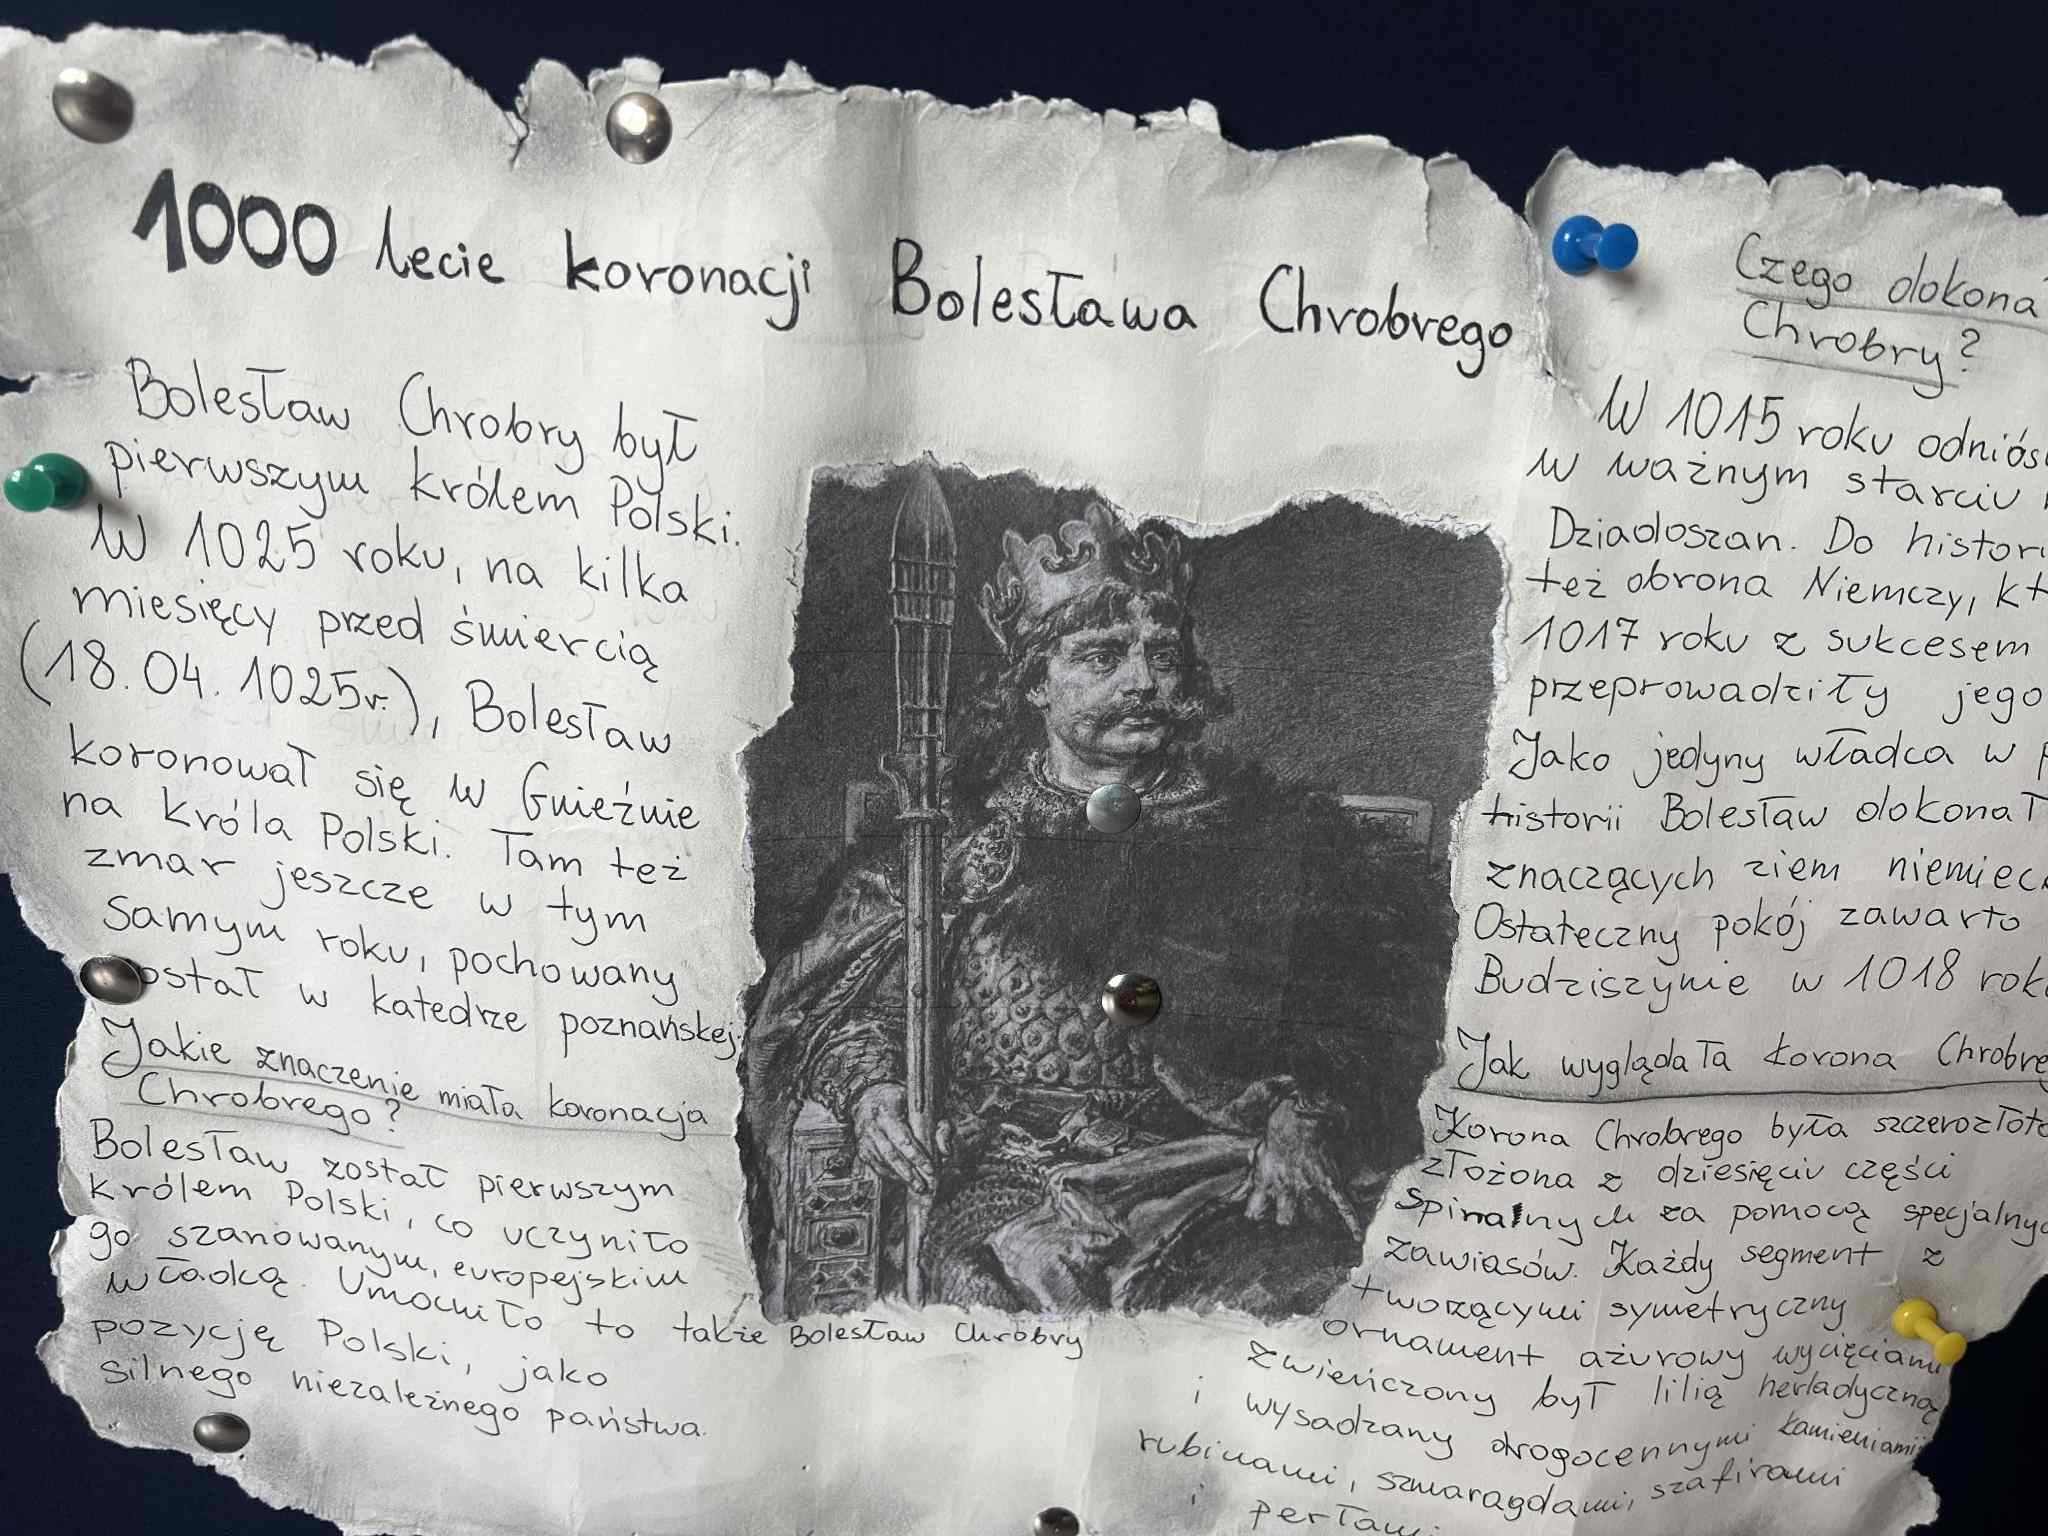 1000 lecie koronacji Bolesława Chrobrego
Bolesław Chrobry był
pierwszym królem Polski.
W 1025 roku, na kilka
miesięcy przed śmiercią
(18.04.1025r.), Bolesław
koronował się w Gnieźnie
na króla Polski. Tam też
zmar jeszcze w tym
samym roku, pochowany
ostał w katedrze poznańskej.
Jakie znaczenie miała koronacja
Chrobrego?
Bolesław został pierwszym
królem Polski, co uczyniło
go szanowanym, europejskim
władcą. Umocniło to także
pozycję Polski, jako
silnego niezależnego państwa.
Bolesław Chrobry
Czego dokona
Chrobry?
W 1015 roku odniós
w ważnym starciu
Dziadoszan. Do histori
też obrona Niemczy, kt
1017 roku z sukcesem
przeprowadziły jego
Jako jedyny władca w p
historii Bolesław dokonał
znaczących ziem niemiec
Ostateczny pokój zawarto
Budziszynie w 1018 rok
Jak wyglądała korona Chrobre
Korona Chrobrego była szczerozłot
złożona z dziesięciu części
spinalnych za pomocą specjalnyc
zawiasów. Każdy segment z
tworzącymi symetryczny
ornament ażurowy wycięciami
zwieńczony był lilią herladyczną
i wysadzany drogocennymi kamieniami:
rubinami, szmaragdami, szafirami
i perłami